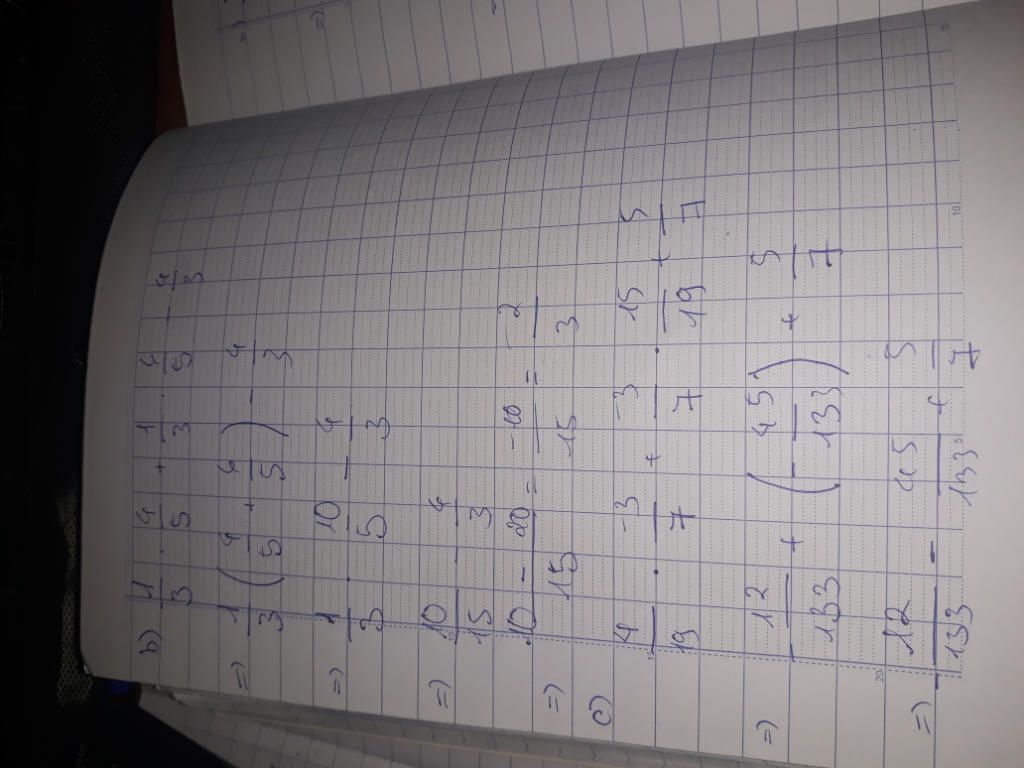 b) 1/3 . 4/5 + 1/3 . 6/5 - 4/3
=> 1/3 (4/5 + 6/5) - 4/3
=> 1/3 . 10/5 - 4/3
=> 10/15 - 4/3
=> 10 - 20/15 = -10/15 = -2/3
c) 4/19 . -3/7 + -3/7 . 15/19 + 5/7
=> -12/133 + (-45/133) + 5/7
=> -12/133 - 45/133 + 5/7